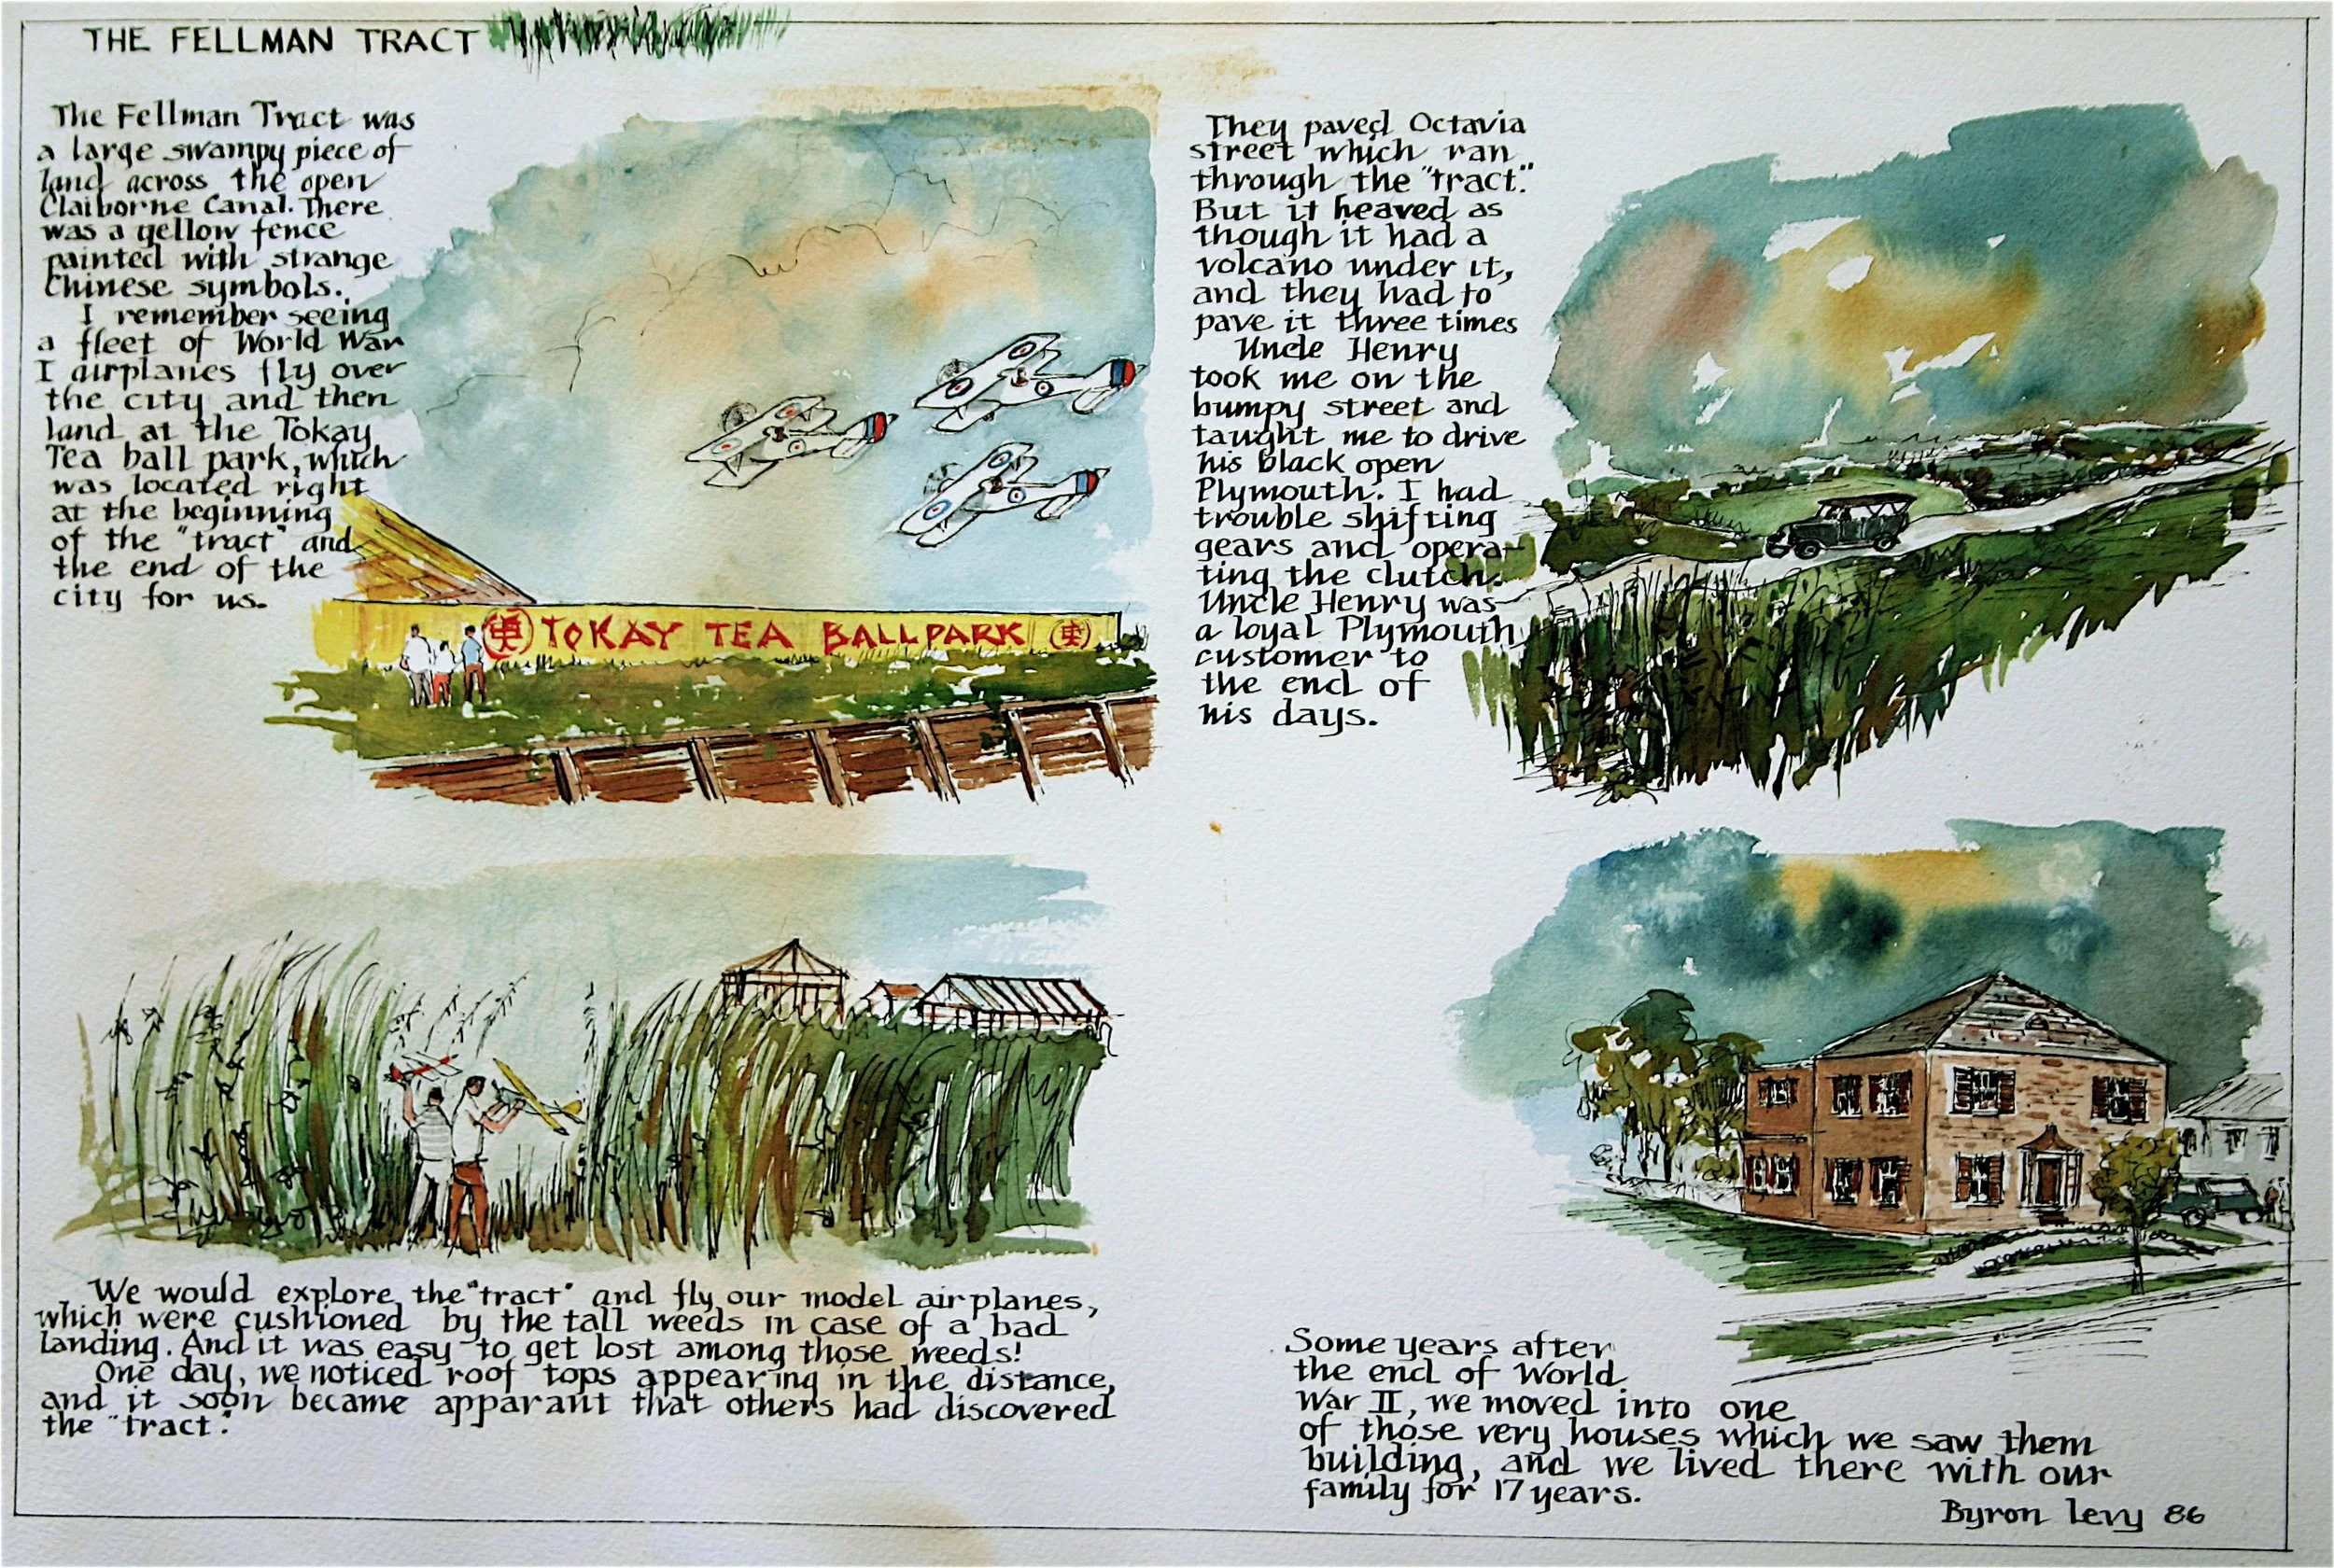 THE FELLMAN TRACT
The Fellman Tract was
a large swampy piece of
land across the open
Claiborne Canal. There
was a yellow fence
painted with strange
Chinese symbols.
I remember seeing
a fleet of World War
I airplanes fly over
the city and then
land at the Tokay
Tea ball park, which
was located right
at the beginning
of the "tract" and
the end of the
city for us.
TOKAY TEA BALLPARK
We would explore the "tract" and fly our model airplanes,
which were cushioned by the tall weeds in case of a bad
landing. And it was easy to get lost among those weeds!
One day, we noticed roof tops appearing in the distance,
and it soon became apparant that others had discovered
the "tract".
They paved Octavia
street which ran
through the "tract."
But it heaved as
though it had a
volcano under it,
and they had to
pave it three times
Uncle Henry
took me on the
bumpy street and
taught me to drive
his black open
Plymouth. I had
trouble shifting
gears and opera-
ting the clutch.
Uncle Henry was
a loyal Plymouth
customer to
the end of
his days.
Some years after
the end of World
War II, we moved into one
of those very houses which we saw them
building, and we lived there with our
family for 17 years.
Byron Levy 86